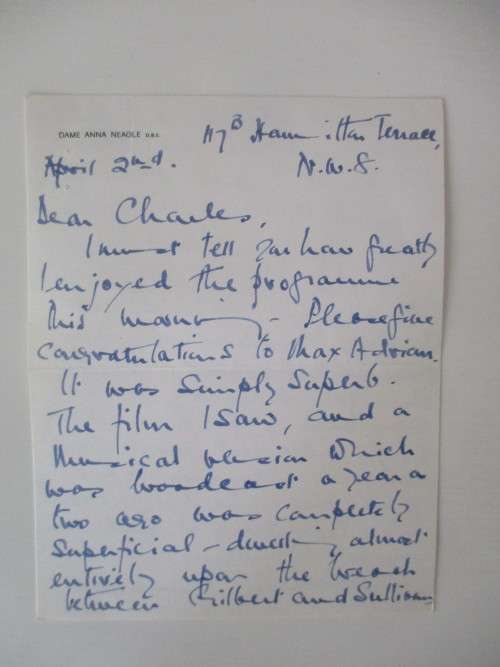 DAME ANNA NEAGLE D.B.E.
117B Hamilton Terrace,
April 2nd. N.W.8.
Dear Charles,
I must tell you how greatly
I enjoyed the programme
this morning - Please give
congratulations to Max Adrian.
It was simply superb.
The film I saw, and a
Musical version which
was broadcast a year or
two ago was completely
superficial - dwelling almost
entirely upon the breach
between Gilbert and Sullivan